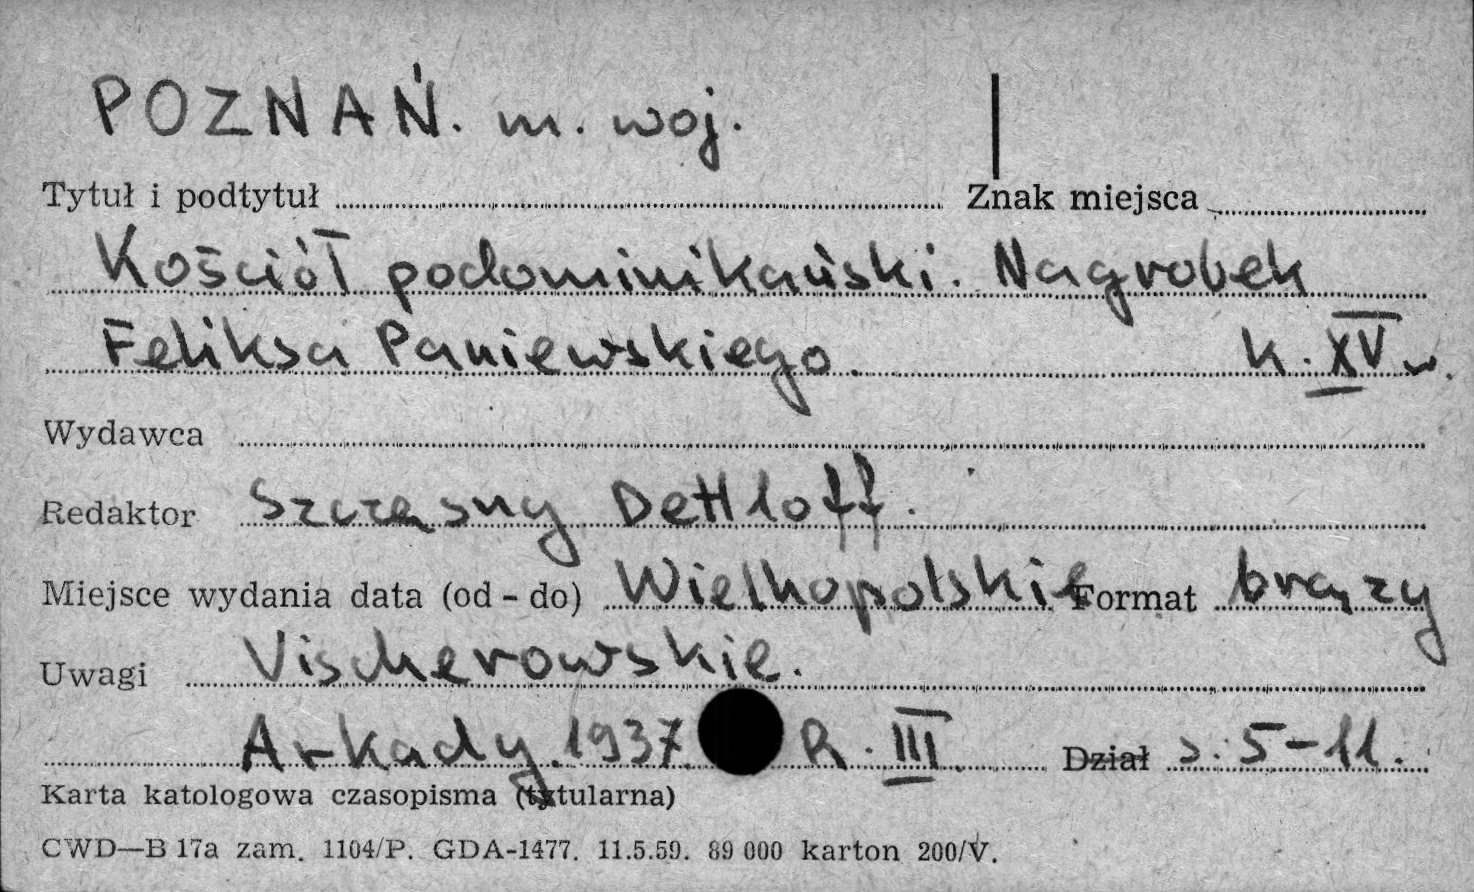 POZNAŃ. m. woj.
Tytuł i podtytuł Znak miejsca
Kościół podominikański. Nagrobek
Feliksa Paniewskiego. k. XV w.
Wydawca
Redaktor Szczęsny Dettloff.
Miejsce wydania data (od - do) Wielkopolskie Format brązy
Uwagi Vischerowskie.
Arkady. 1937. R. III. Dział s. 5-11.
Karta katologowa czasopisma (tytularna)
CWD—B 17a zam. 1104/P. GDA-1477. 11.5.59. 89 000 karton 200/V.